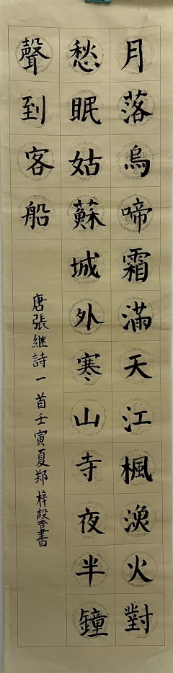 月落烏啼霜滿天江楓漁火對
愁眠姑蘇城外寒山寺夜半鐘
聲到客船
唐張繼詩一首壬寅夏郑梓馨書